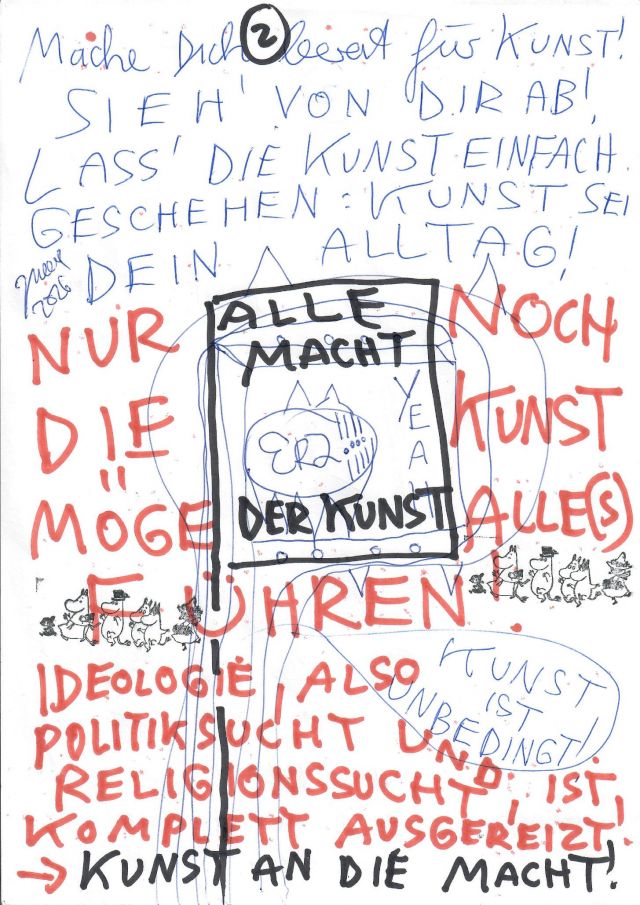 2
Mache Dich bereit für KUNST!
SIEH' VON DIR AB!,
LASS' DIE KUNST EINFACH
GESCHEHEN: KUNST SEI
DEIN ALLTAG!
2026
ALLE
MACHT
YEAH
ER2
DER KUNST
NUR NOCH
DIE KUNST
MÖGE ALLE(S)
FÜHREN!
KUNST
IST
UNBEDINGT!
IDEOLOGIE, ALSO
POLITIKSUCHT UND
RELIGIONSSUCHT, IST
KOMPLETT AUSGEREIZT!
→ KUNST AN DIE MACHT!